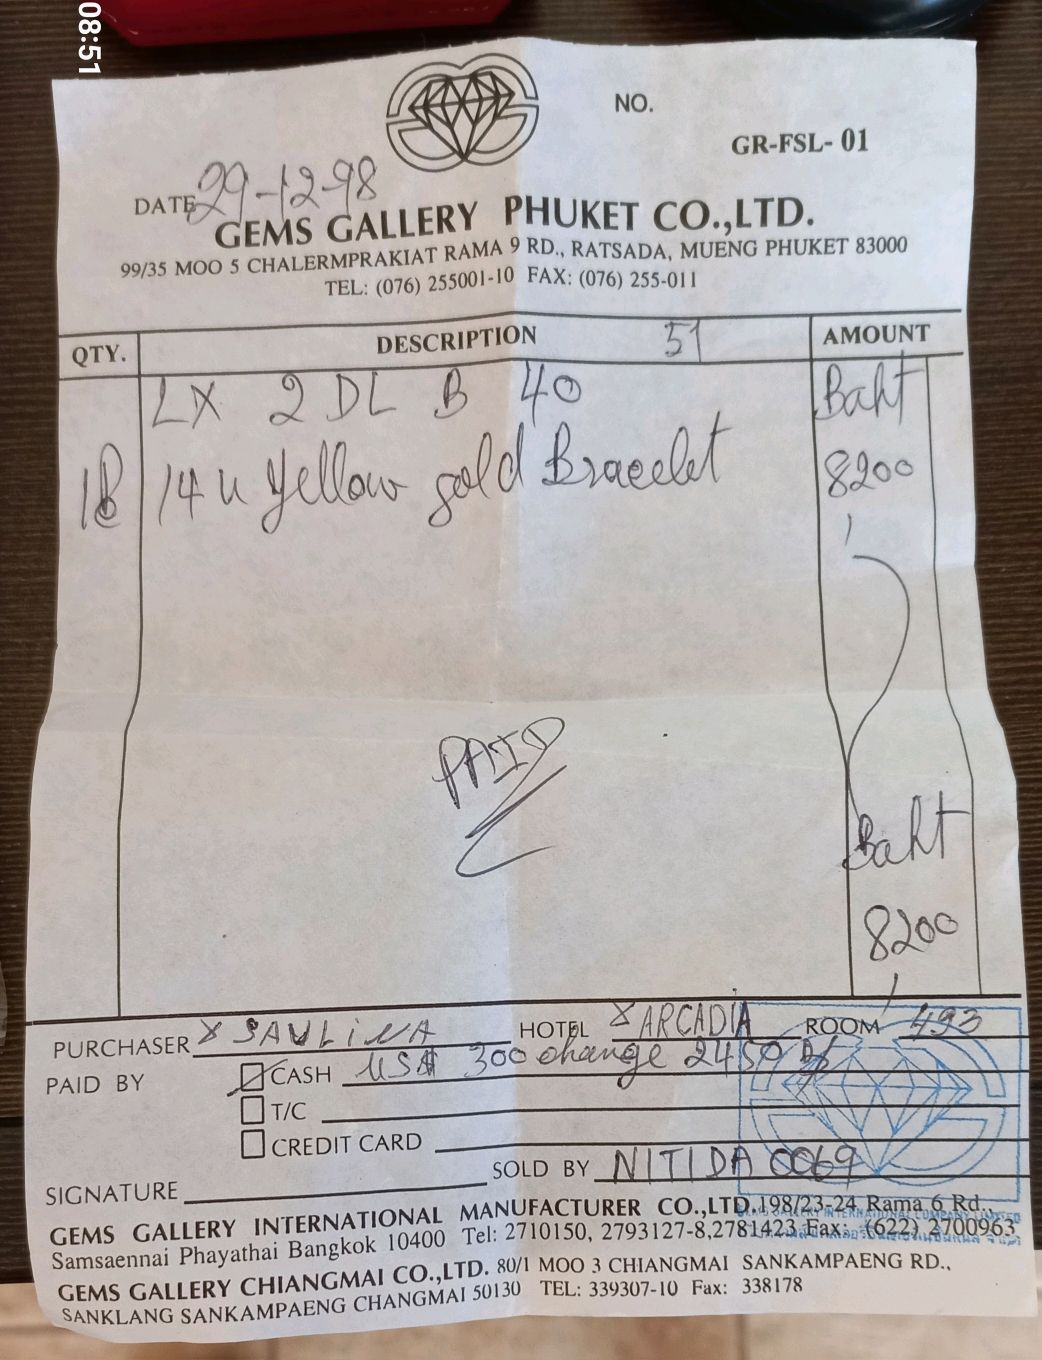 08:51
NO.
GR-FSL- 01
DATE 29-12-98
GEMS GALLERY PHUKET CO.,LTD.
99/35 MOO 5 CHALERMPRAKIAT RAMA 9 RD., RATSADA, MUENG PHUKET 83000
TEL: (076) 255001-10 FAX: (076) 255-011
QTY. DESCRIPTION 51 AMOUNT
LX 2 DL B 40 Baht
14 K Yellow gold Bracelet 8200
PAID
Baht
8200
PURCHASER X SAULINA HOTEL X ARCADIA ROOM 493
PAID BY CASH US$ 300 change 2450 B
T/C
CREDIT CARD
SOLD BY NITIDA 0069
SIGNATURE
GEMS GALLERY INTERNATIONAL MANUFACTURER CO.,LTD. 198/23-24 Rama 6 Rd.,
Samsaennai Phayathai Bangkok 10400 Tel: 2710150, 2793127-8,2781423 Fax: (622) 2700963
GEMS GALLERY CHIANGMAI CO.,LTD. 80/1 MOO 3 CHIANGMAI SANKAMPAENG RD.,
SANKLANG SANKAMPAENG CHANGMAI 50130 TEL: 339307-10 Fax: 338178